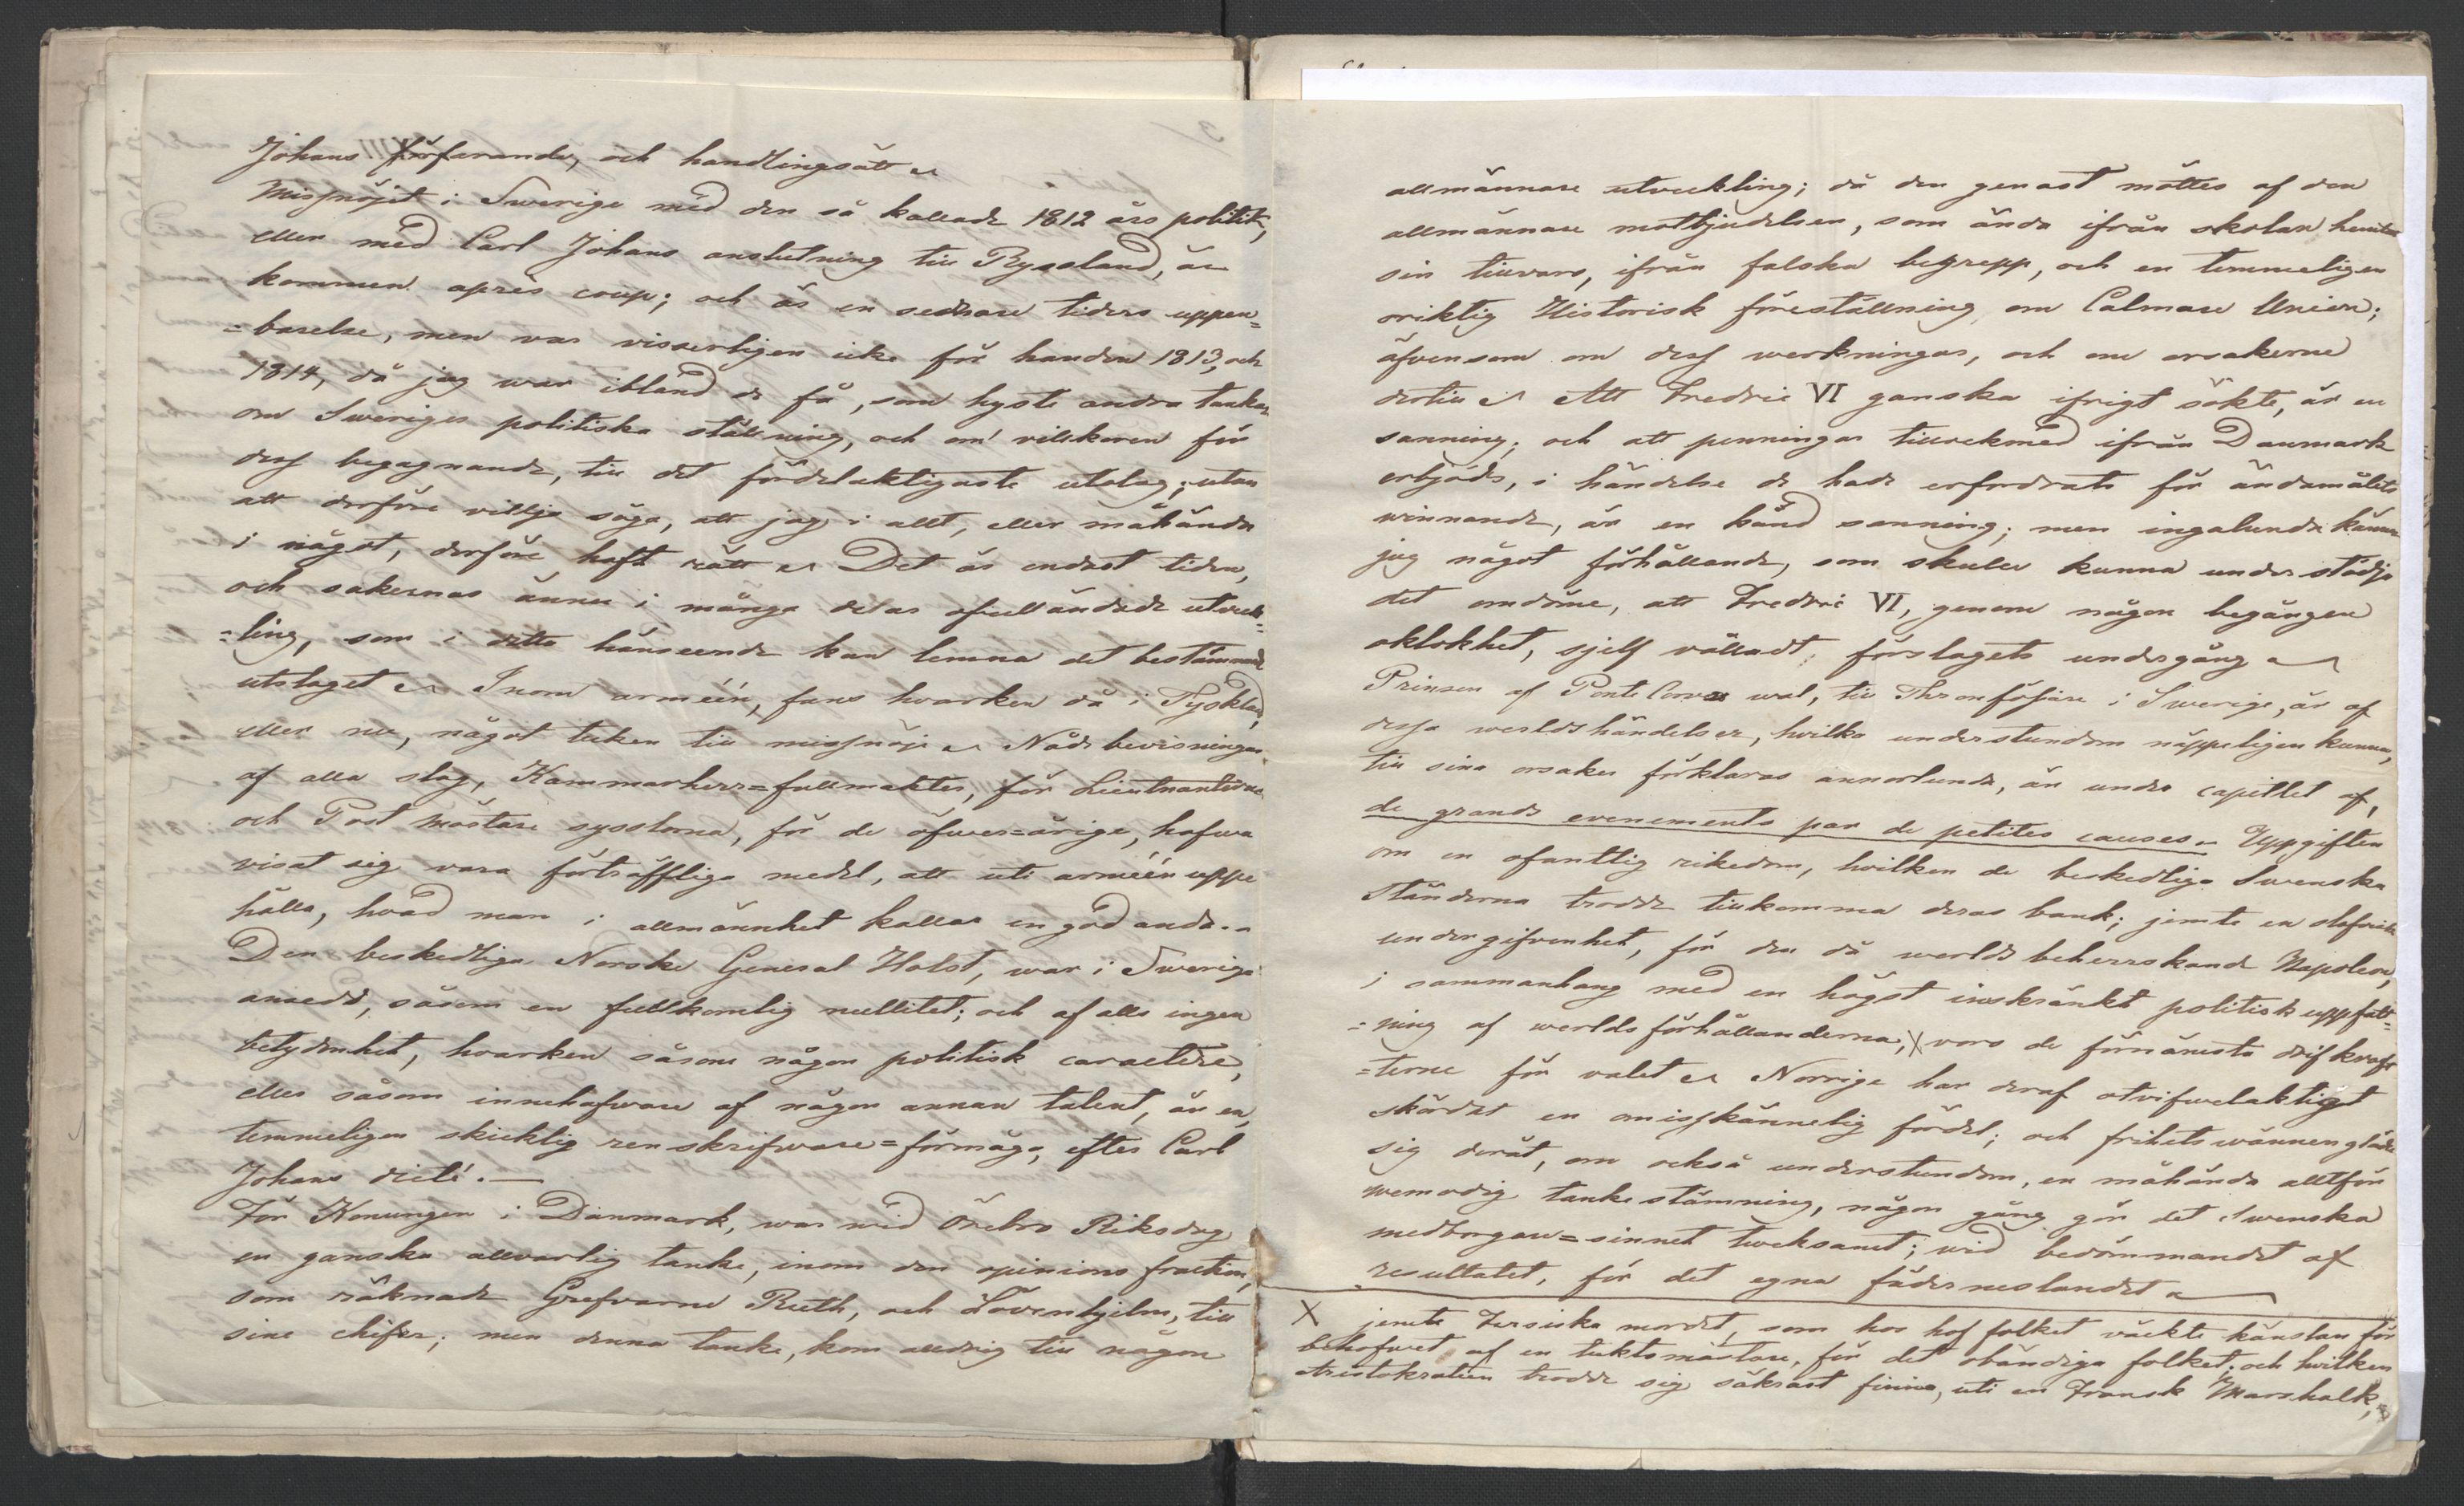 Johans förfarande, och handlingsätt
Missnöjet i Swerige med den så kallade 1812 års politik,
eller med Carl Johans anslutning till Ryssland, är
kommen après coup; och är en sednare tiders uppen=
=barelse, men war visserligen icke för handen 1813, och
1814, då jag war ibland de få, som hyste andra tankar
om Sweriges politiska ställning, och om villkoren för
dess begagnande, till det fördelaktigaste utslag; utan
att derföre villja säga, att jag i allt, eller måhända
i något, derföre haft rätt Det är endast tiden,
och sakernas ännu i många delar ofulländade utveck=
=ling, som i detta hänseende kan lemna det bestämmande
utslaget Inom arméen, fans hvarken då i Tyskland,
eller nu, något tecken till missnöje Nåds bevisningar,
af alla slag, Kammarherr=fullmakter, för Lieutnanterne
och Post Mästare sysslorna, för de öfwer=årige, hafwa
visat sig vara förträffliga medel, att uti arméen uppe
hålla, hvad man i allmännhet kallar en god anda.
Den beskedliga Norske General Holst, war i Swerige
ansedd, såsom en fullkomlig nullitet; och af alls ingen
betydenhet, hvarken såsom någon politisk caractere,
eller såsom innehafware af någon annan talent, än en,
temmeligen skicklig renskrifware=förmåga, efter Carl
Johans dicté.—
För Konungen i Danmark, war wid Örebro Riksdag
en ganska allvarlig tanke, inom den opinions fraction,
som räknade Grefvarne Ruth, och Lövenhjelm, till
sine chefer; men denna tanke, kom alldrig till någon
allmännare utveckling; då den genast möttes af den
allmännare motbjudelsen, som ända ifrån skolan
sin tillvaro, ifrån falska begrepp, och en temmeligen
oriktig Historisk föreställning, om Calmare Union;
äfvensom om dess werkningar, och om orsakerne
dertill Att Fredric VI ganska ifrigt sökte, är en
sanning; och att penningar tillochmed ifrån Danmark
erbjöds, i händelse de hade erfordrats för ändamålets
winnande, är en känd sanning; men ingalunda känner
jag något förhållande, som skulle kunna understödja
det omdöme, att Fredric VI, genom någon begången
oklokhet, sjelf vålladt, förslagets undergång
Prinsen af Ponte Corvos wal, till Thronföljare i Swerige, är af
dessa werldshändelser, hvilka understundom näppeligen kunna,
till sina orsaker förklaras annorlunda, än under capitlet af,
de grands evenements par de petites causes. Uppgiften
om en ofantlig rikedom, hvilken de beskedliga Swenska
Ständerna trodde tillkomma deras bank; jemte en slafvisk
undergifvenhet, för den då werlds beherrskande Napoleon,
i sammanhang med en högst inskränkt politisk uppfatt=
=ning af werlds förhållanderna, X voro de förnämsta drifkraf=
=terne för valet Norrige har deraf otvifwelaktigt
skördat en omisskännelig fördel; och frihetswännen gläder
sig deråt, om också understundom, en måhända alltför
wemodig tankestämning, någon gång gör det Swenska
medborgare=sinnet tveksamt; wid bedömmandet af
resultatet, för det egna fäderneslandet
X jemte Fersiska mordet, som hos hof folket väckte känslan för
behofwet af en tuktomästare, för det obändiga folket; och hwilken
Aristokratien trodde sig säkrast finna, uti en Fransk Marskalk,